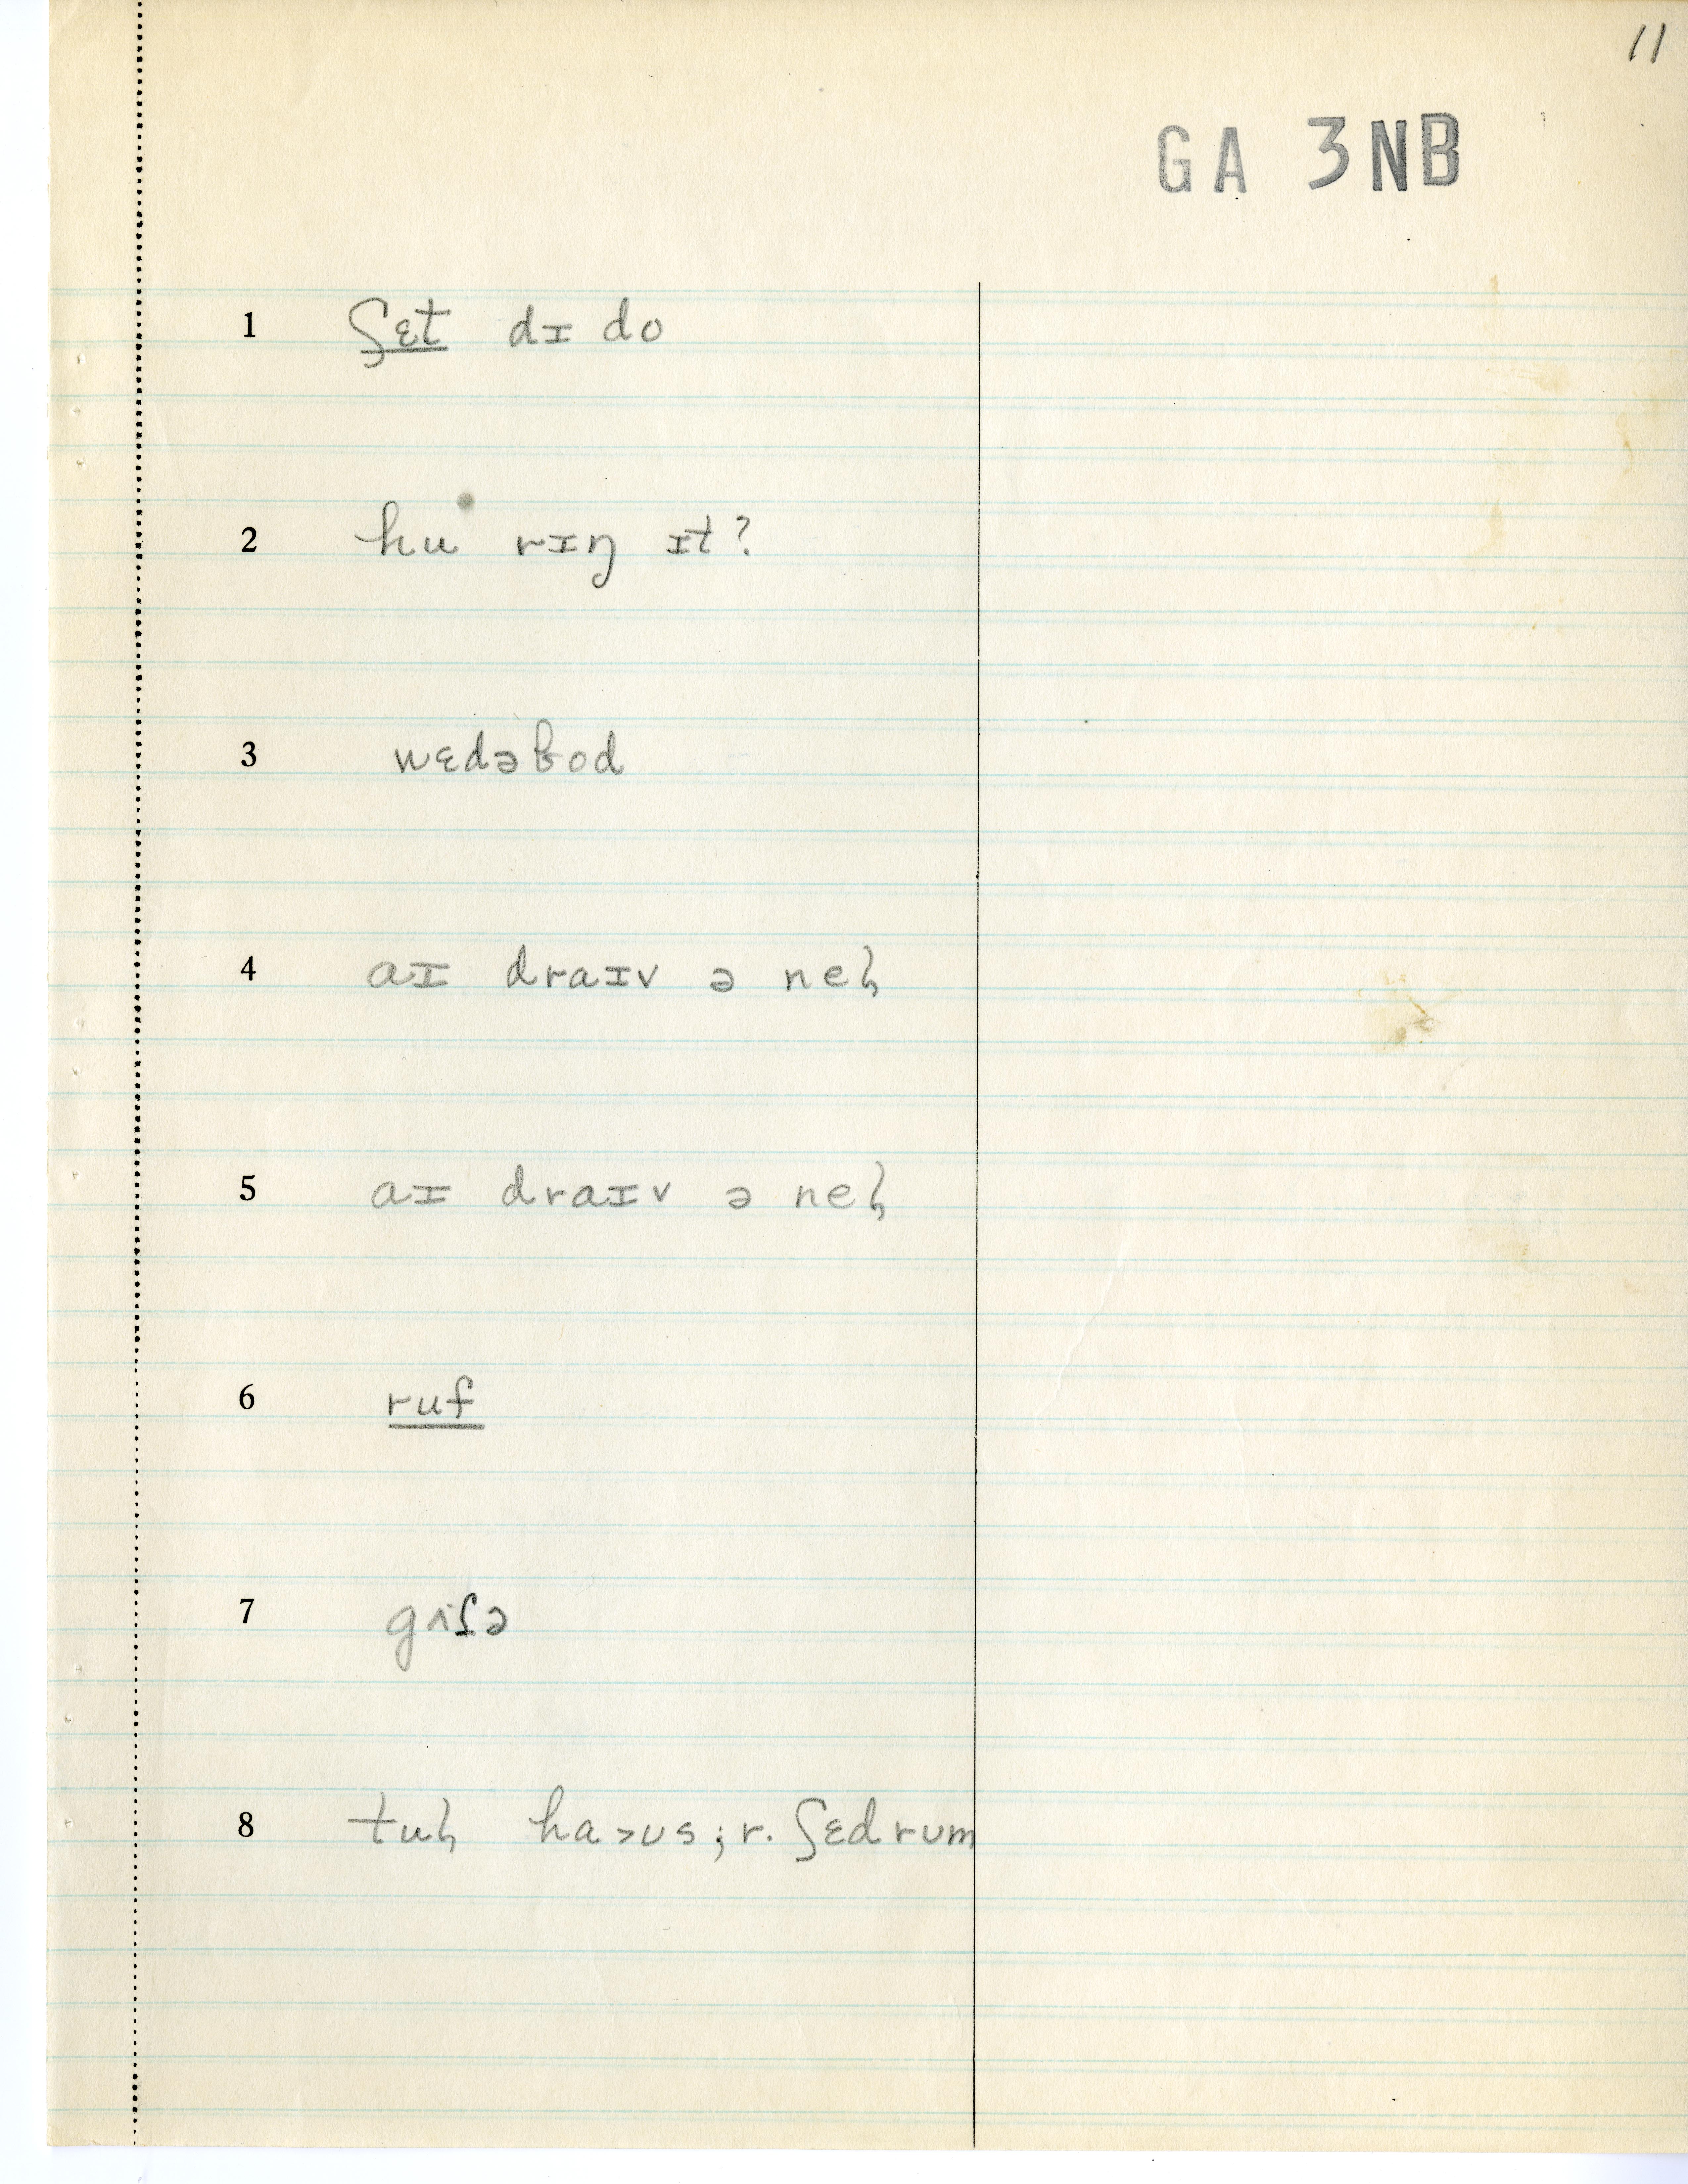 11
GA 3NB
1 ʃɛt dɪ do
2 hu rɪŋ ɪt?
3 wɛdəbod
4 aɪ draɪv ə neɫ
5 aɪ draɪv ə neɫ
6 ruf
7 gʌtə
8 tuɫ ha>ʊs; r. ʃɛdrum